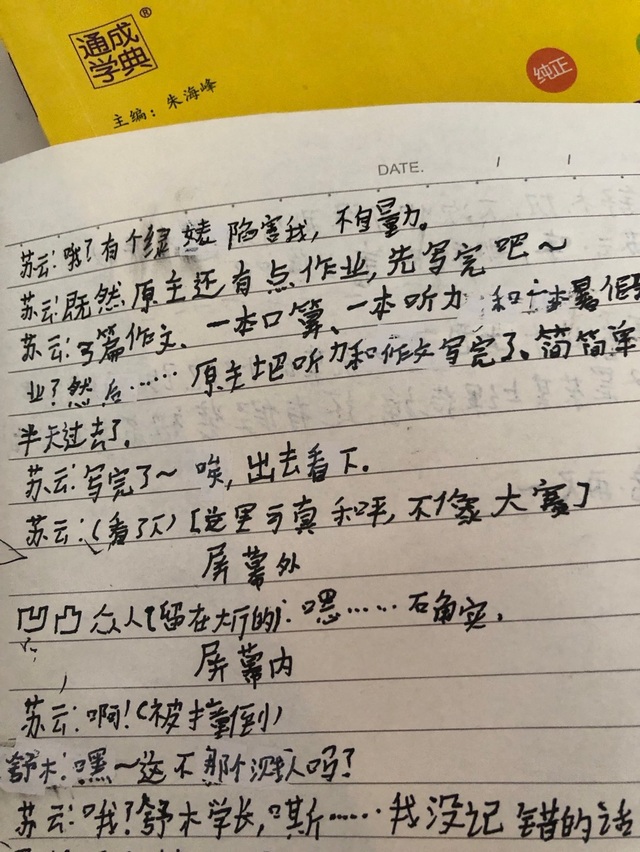 通成
学典
®
纯正
主编：朱海峰
DATE.
苏云：哦？有个绿 婊 陷害我，不自量力。
苏云：既然原主还有点作业，先写完吧～
苏云：3篇作文、一本口算、一本听力 和一本暑假
业？然后…… 原主把听力和作文写完了。简简单
半天过去了。
苏云：写完了～ 唉，出去看下。
苏云：（看了下）【这里可真和平，不像大赛】
屏幕外
凹凸众人（留在大厅的）：嘿…… 石角实。
屏幕内
苏云：啊！（被撞倒）
舒木：嘿～这不那个 人吗？
苏云：哦？舒木学长，嘶……我没记错的话